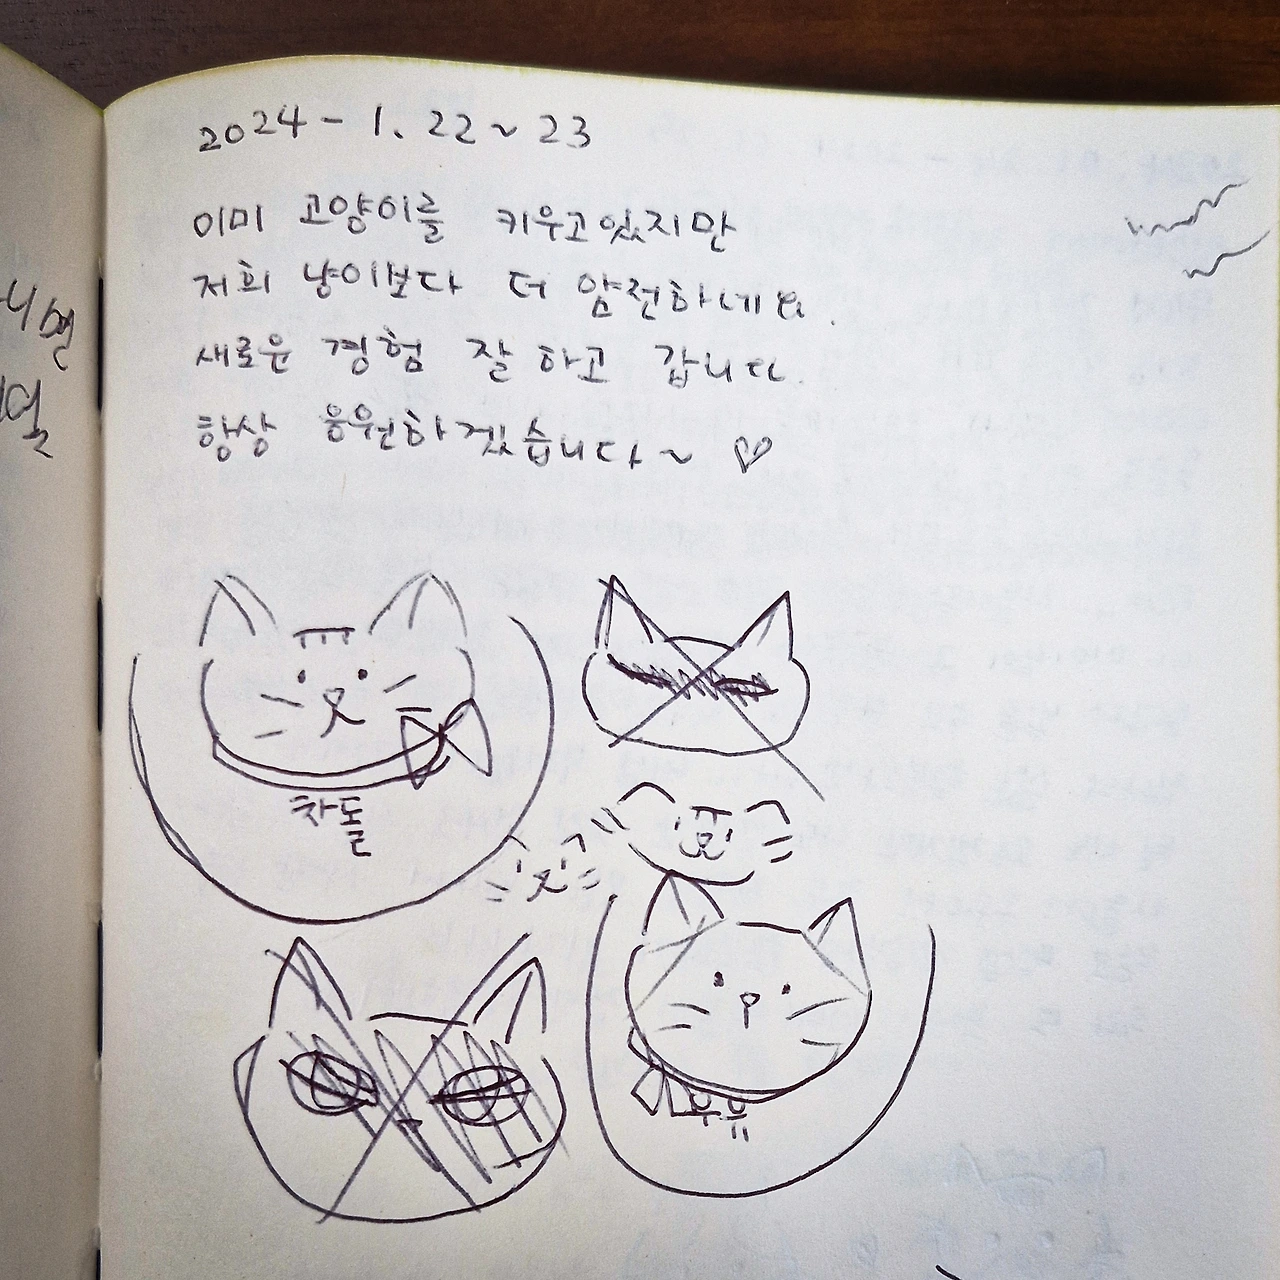 2024 - 1. 22 ~ 23
이미 고양이를 키우고있지만
저희 냥이보다 더 얌전하네요.
새로운 경험 잘 하고 갑니다.
항상 응원하겠습니다~ ♡
차돌
우유